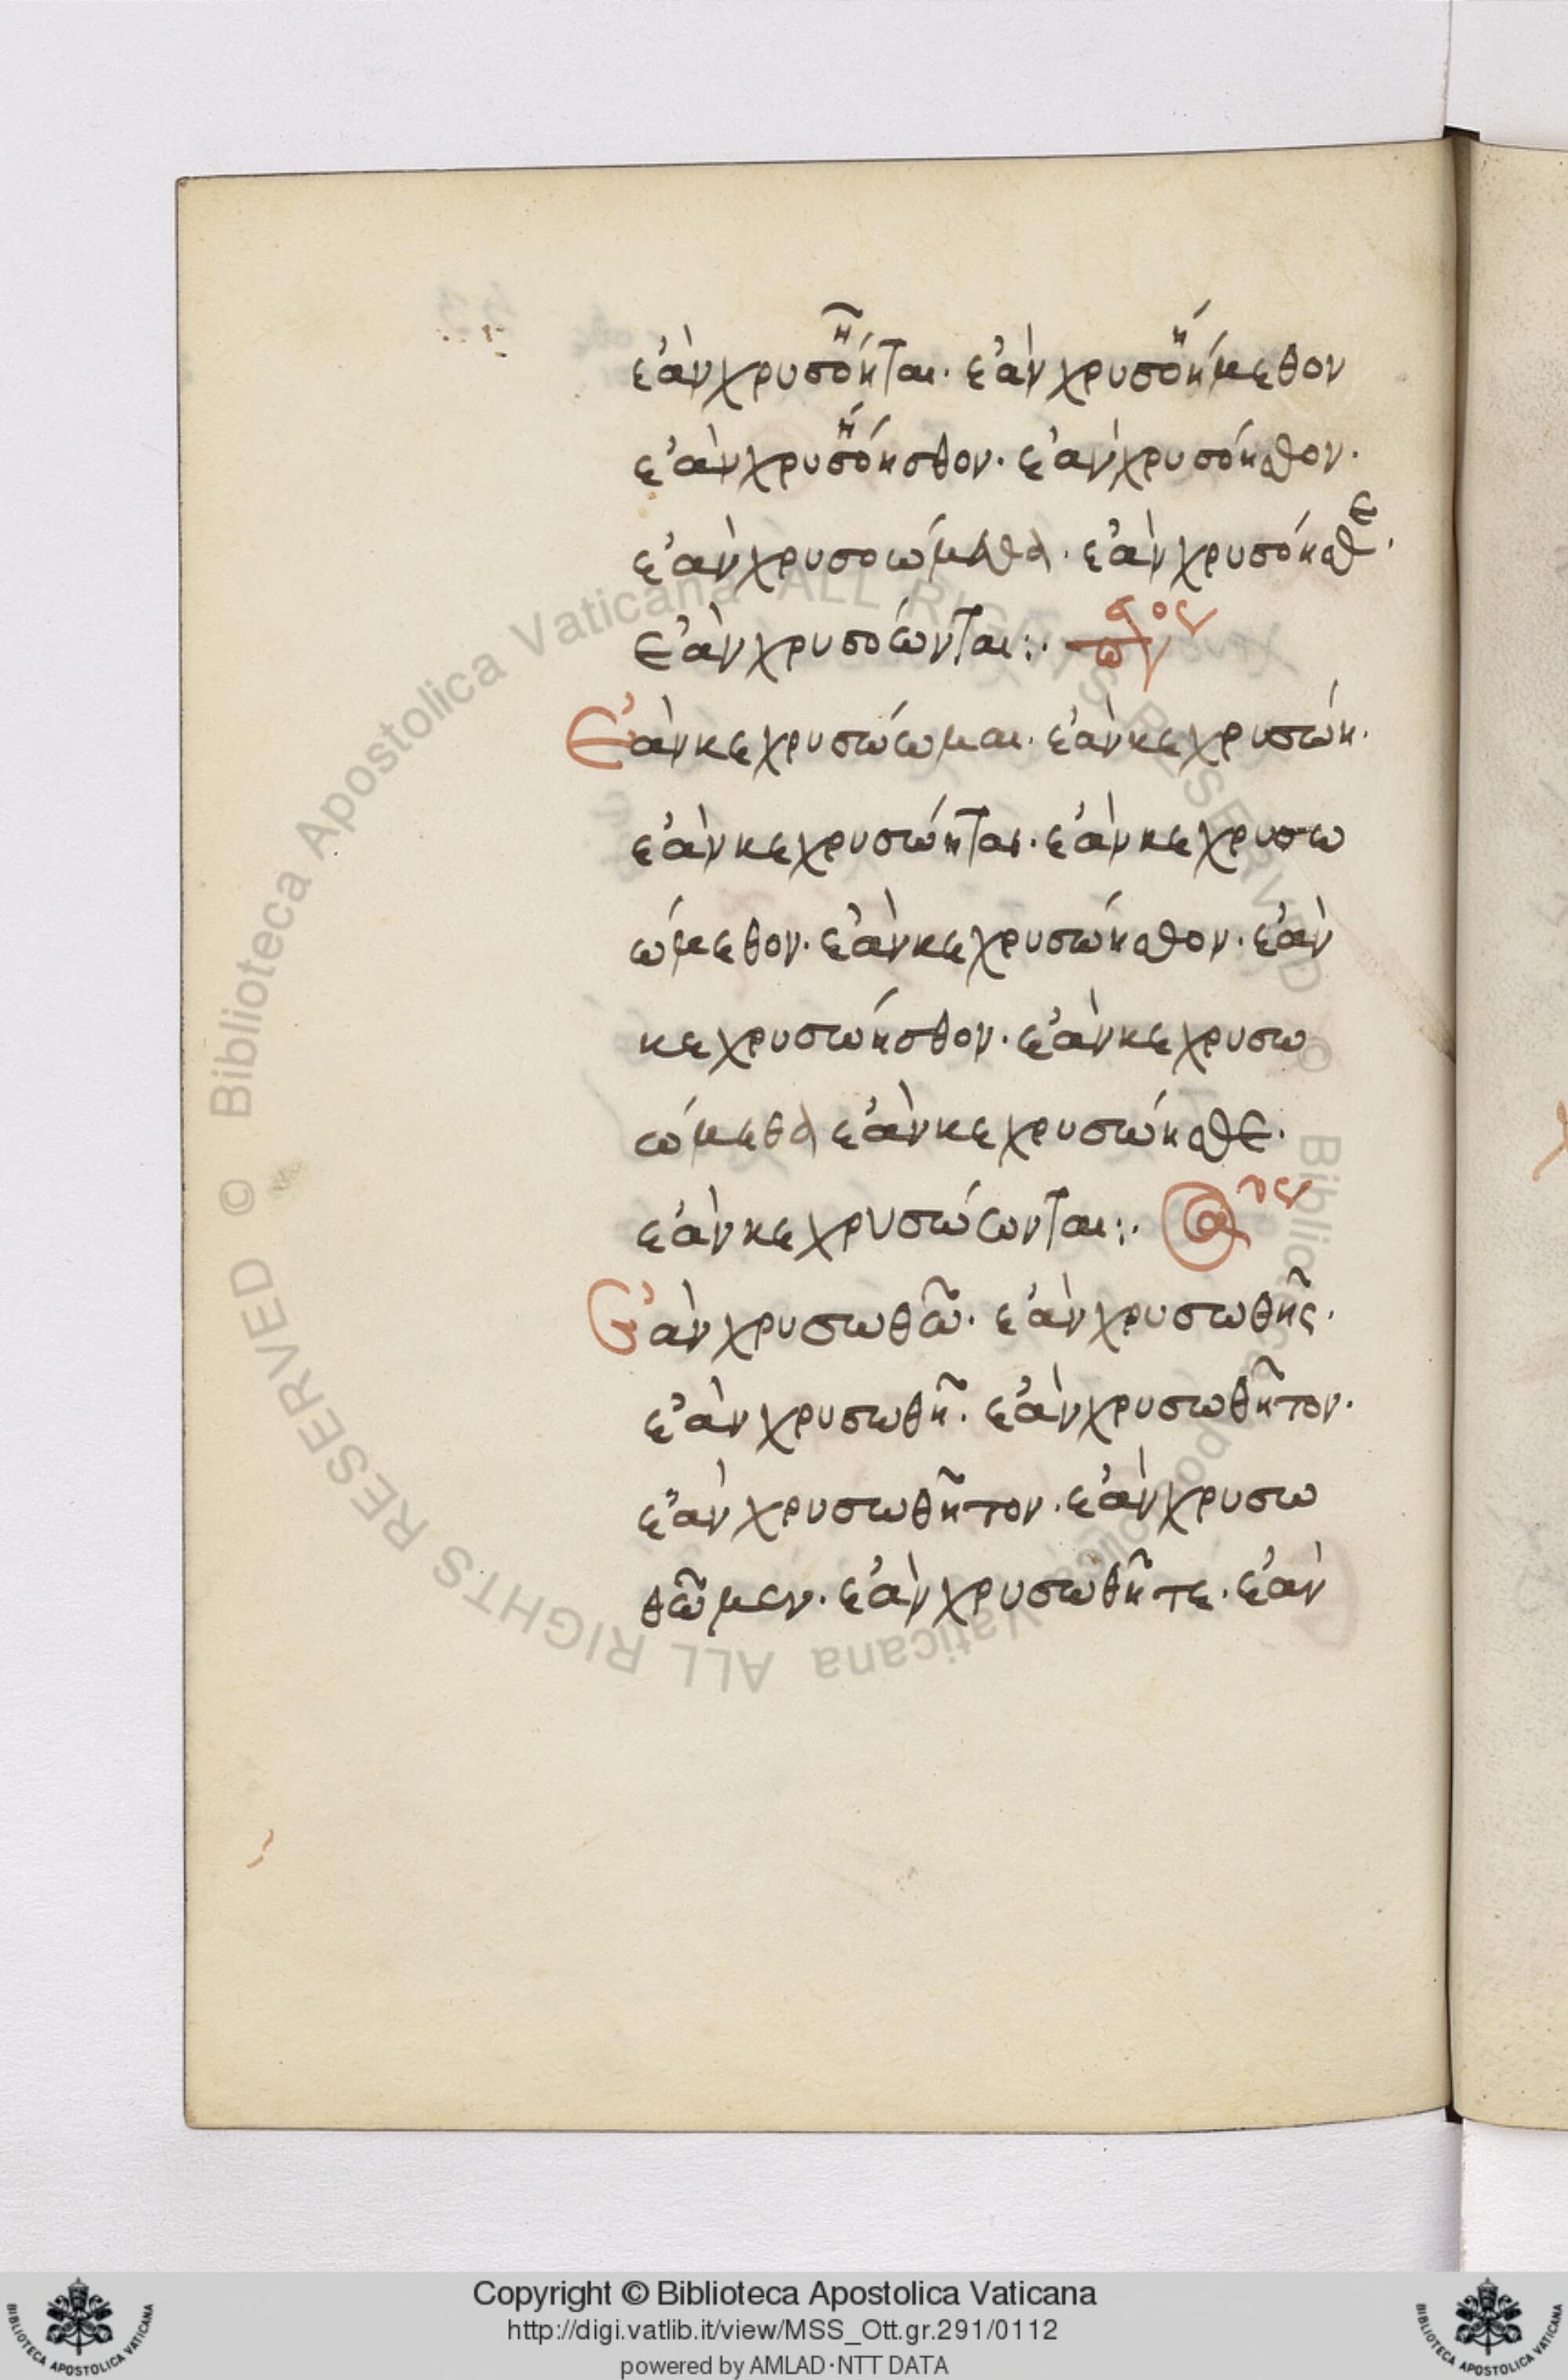 ἐὰν χρυσόηται. ἐὰν χρυσοήμεθον
ἐὰν χρυσόησθον. ἐὰν χρυσόησθον.
ἐὰν χρυσοώμεθα. ἐὰν χρυσόησθε.
ἐὰν χρυσόωνται:.
Ἐὰν κεχρυσώωμαι. ἐὰν κεχρυσώη.
ἐὰν κεχρυσώηται. ἐὰν κεχρυσω
ώμεθον. ἐὰν κεχρυσώησθον. ἐὰν
κεχρυσώησθον. ἐὰν κεχρυσω
ώμεθα ἐὰν κεχρυσώησθε.
ἐὰν κεχρυσώωνται:.
Ἐὰν χρυσωθῶ. ἐὰν χρυσωθῆς.
ἐὰν χρυσωθῆ. ἐὰν χρυσωθῆτον.
ἐὰν χρυσωθῆτον. ἐὰν χρυσω
θῶμεν. ἐὰν χρυσωθῆτε. ἐὰν
© Biblioteca Apostolica Vaticana ALL RIGHTS RESERVED © Biblioteca Apostolica Vaticana ALL RIGHTS RESERVED
Copyright © Biblioteca Apostolica Vaticana
http://digi.vatlib.it/view/MSS_Ott.gr.291/0112
powered by AMLAD·NTT DATA
BIBLIOTECA APOSTOLICA VATICANA
BIBLIOTECA APOSTOLICA VATICANA